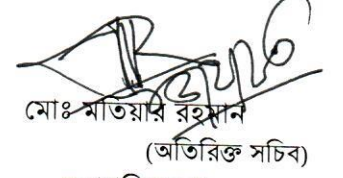 মোঃ মতিয়ার রহমান
(অতিরিক্ত সচিব)